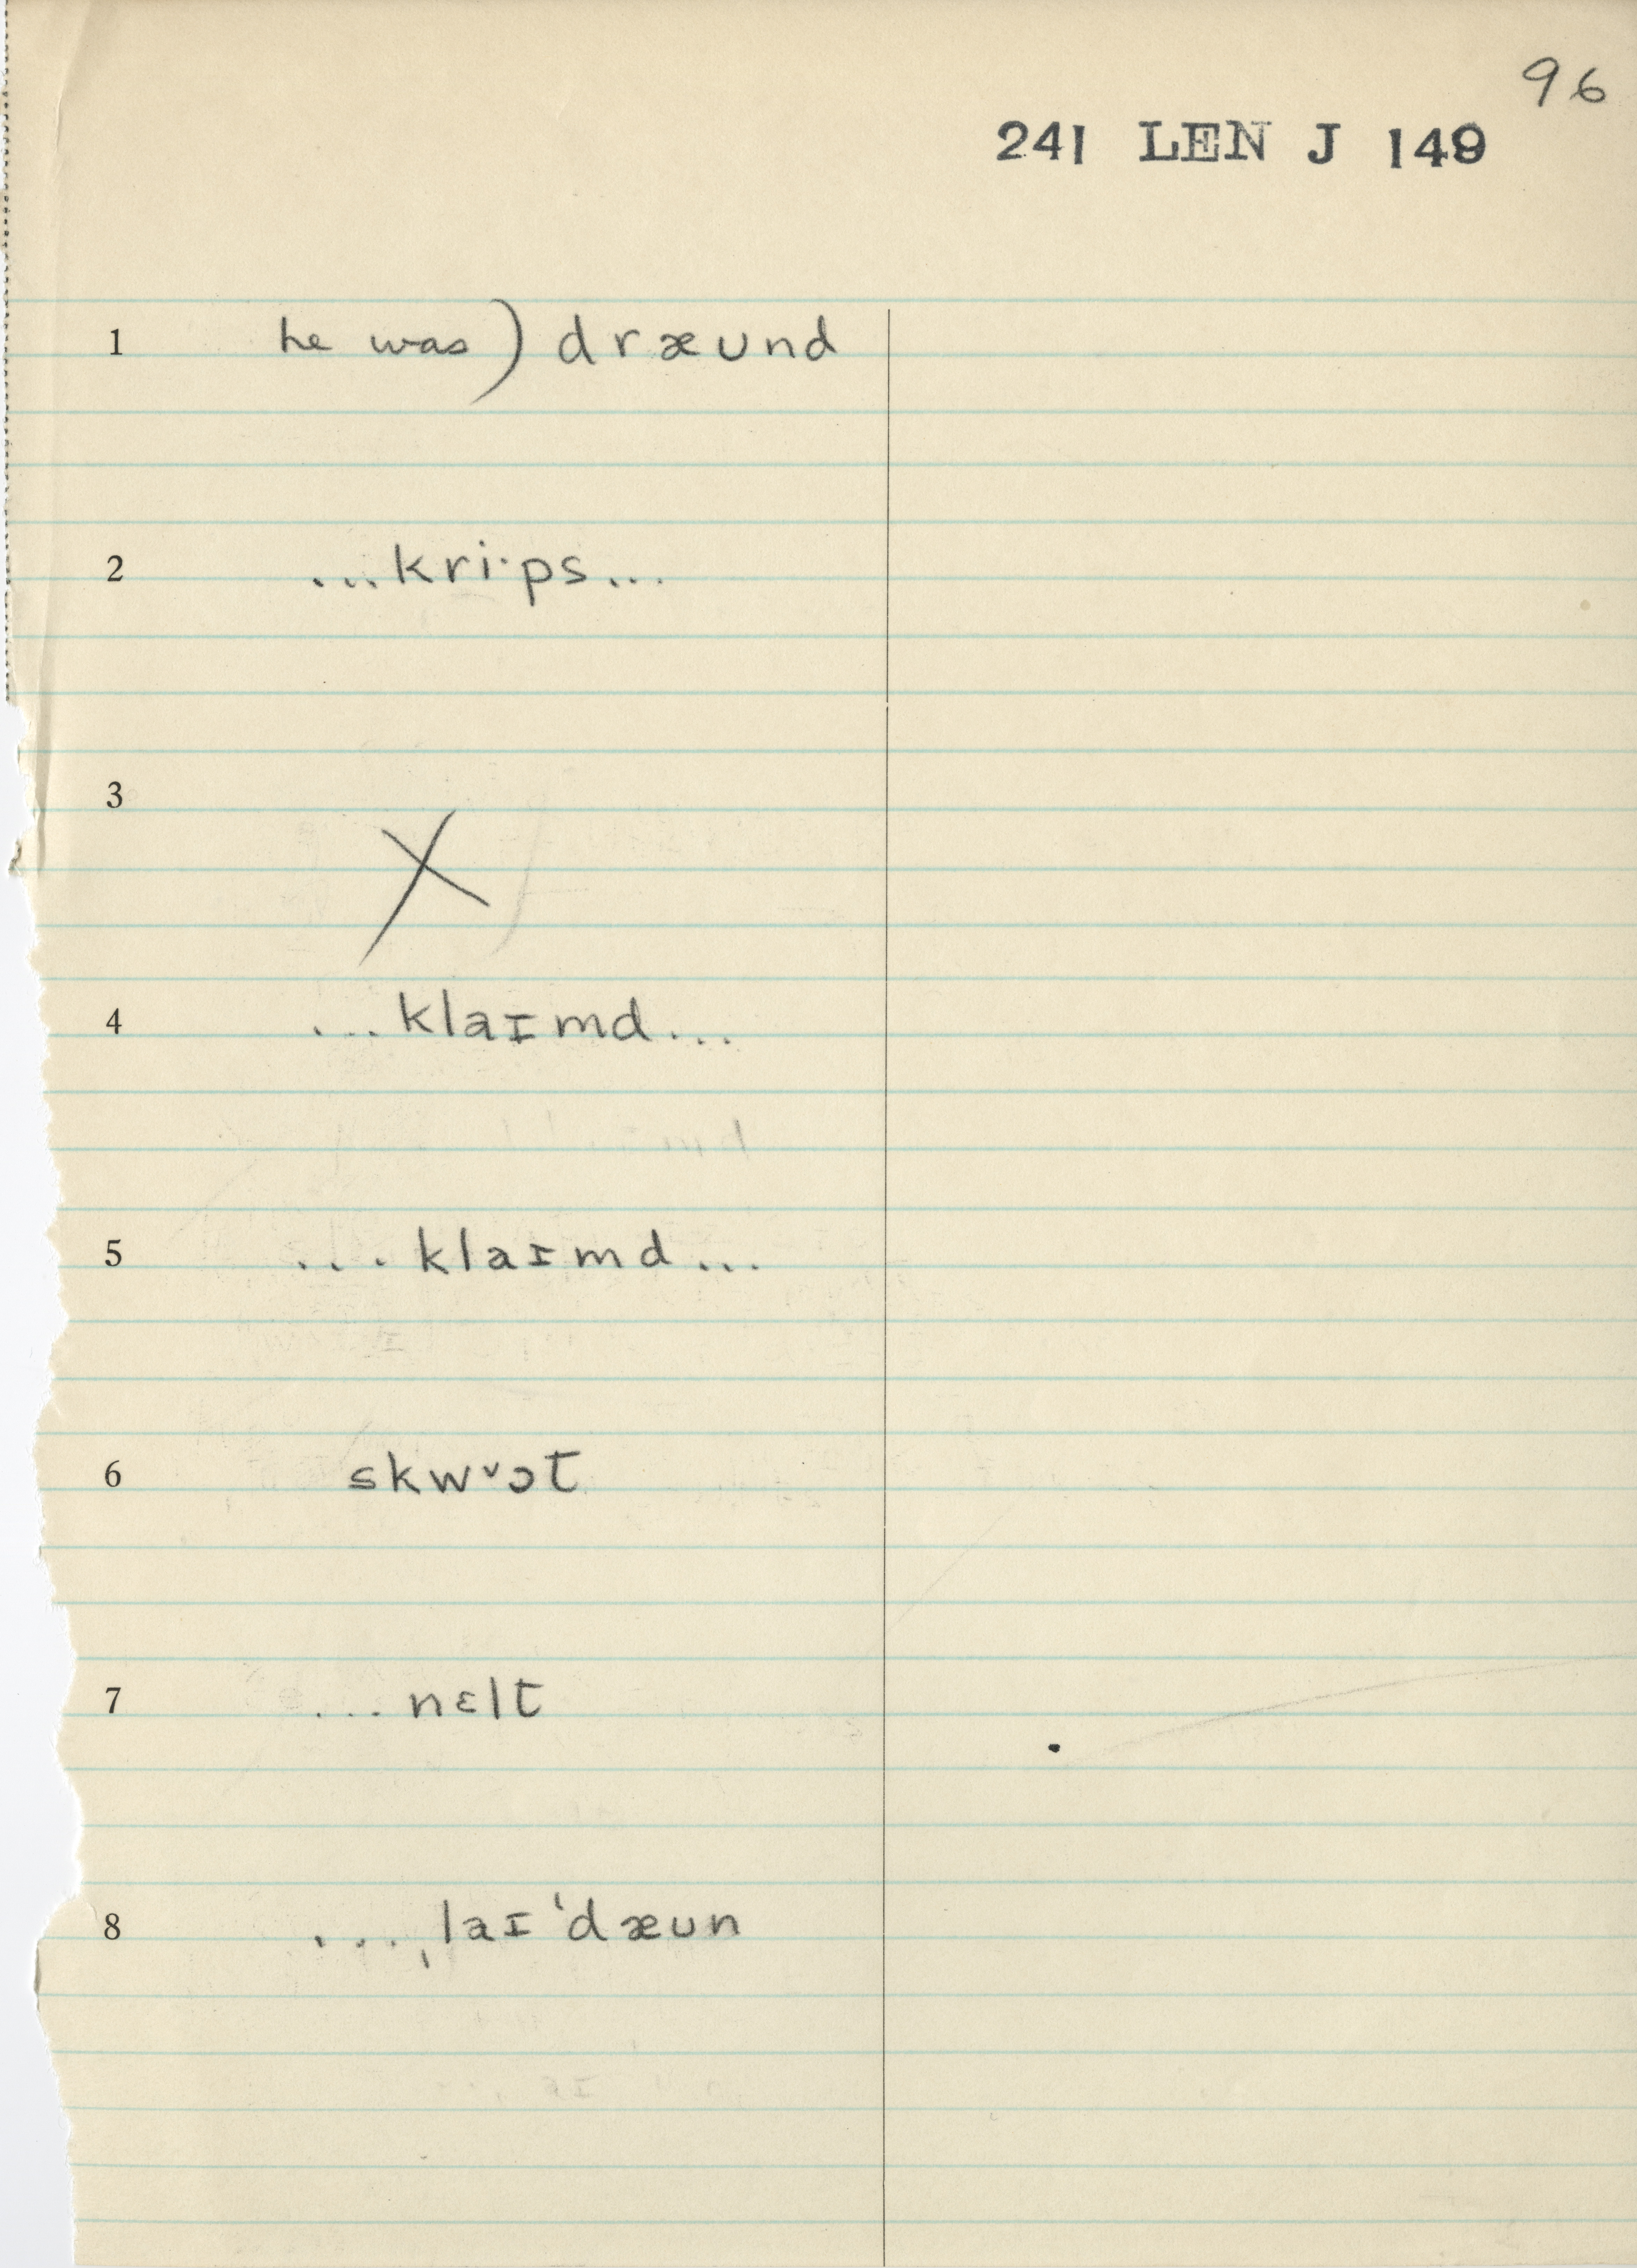 96
241 LEN J 149
1 he was) dræʊnd
2 ...kri·ps...
3 X
4 ...klaɪmd...
5 ...klaɪmd...
6 skwᵛɔt
7 ...nɛlt
8 ...ˌlaɪˈdæʊn